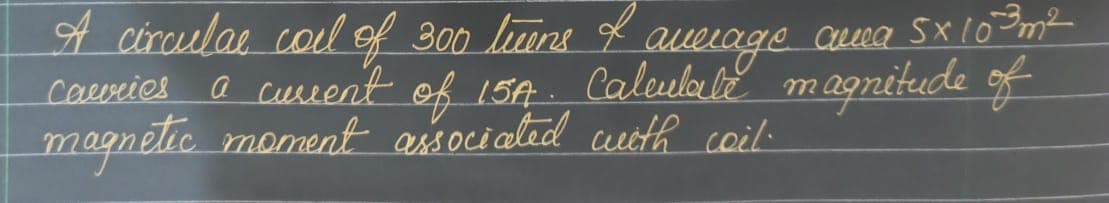 A circular coil of 300 turns & average area 5×10⁻³m²
carries a current of 15A. Calculate magnitude of
magnetic moment associated with coil.